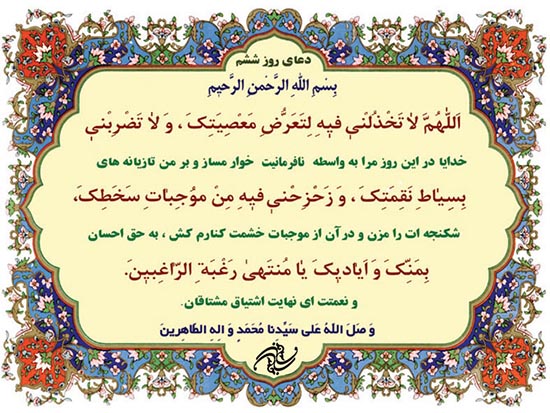 دعای روز ششم
بِسْمِ اللهِ الرَّحْمنِ الرَّحیمِ
اَللّهُمَّ لا تَخْذُلْنی فیهِ لِتَعَرُّضِ مَعْصِیَتِکَ ، وَ لا تَضْرِبْنی
خدایا در این روز مرا به واسطه نافرمانیت خوار مساز و بر من تازیانه های
بِسِیاطِ نَقِمَتِکَ ، وَ زَحْزِحْنی فیهِ مِنْ مُوجِباتِ سَخَطِکَ،
شکنجه ات را مزن و درآن از موجبات خشمت کنارم کش ، به حق احسان
بِمَنِّکَ وَ اَیادیکَ یا مُنْتَهی رَغْبَةِ الرّاغِبینَ.
و نعمتت ای نهایت اشتیاق مشتاقان.
وَ صَلَ اللهُ عَلی سَیِّدنا مُحَمَدٍ وَ الِهِ الطاهِرینَ